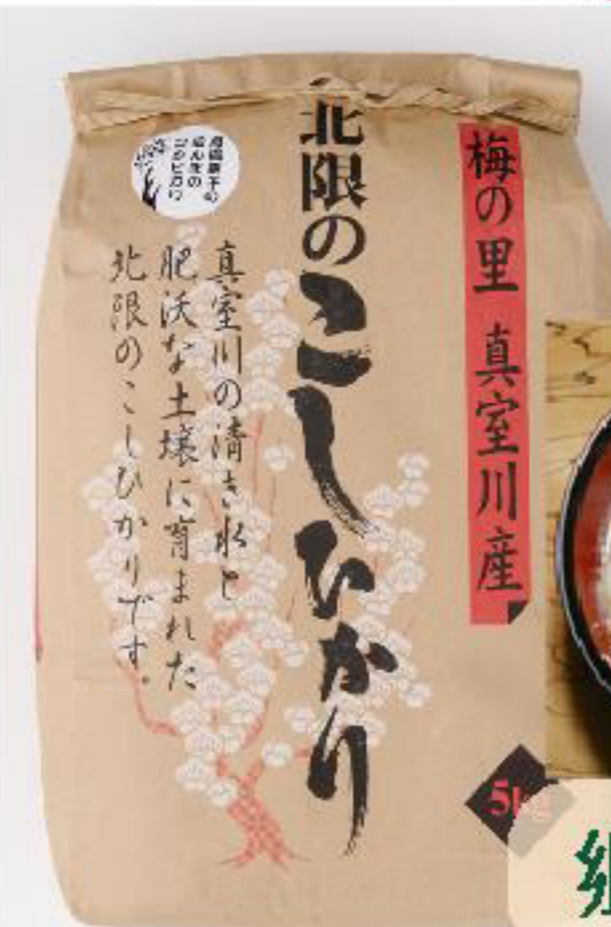 梅の里 真室川産
北限のこしひかり
真室川の清き水と
肥沃な土壌に育まれた
北限のこしひかりです。
5kg